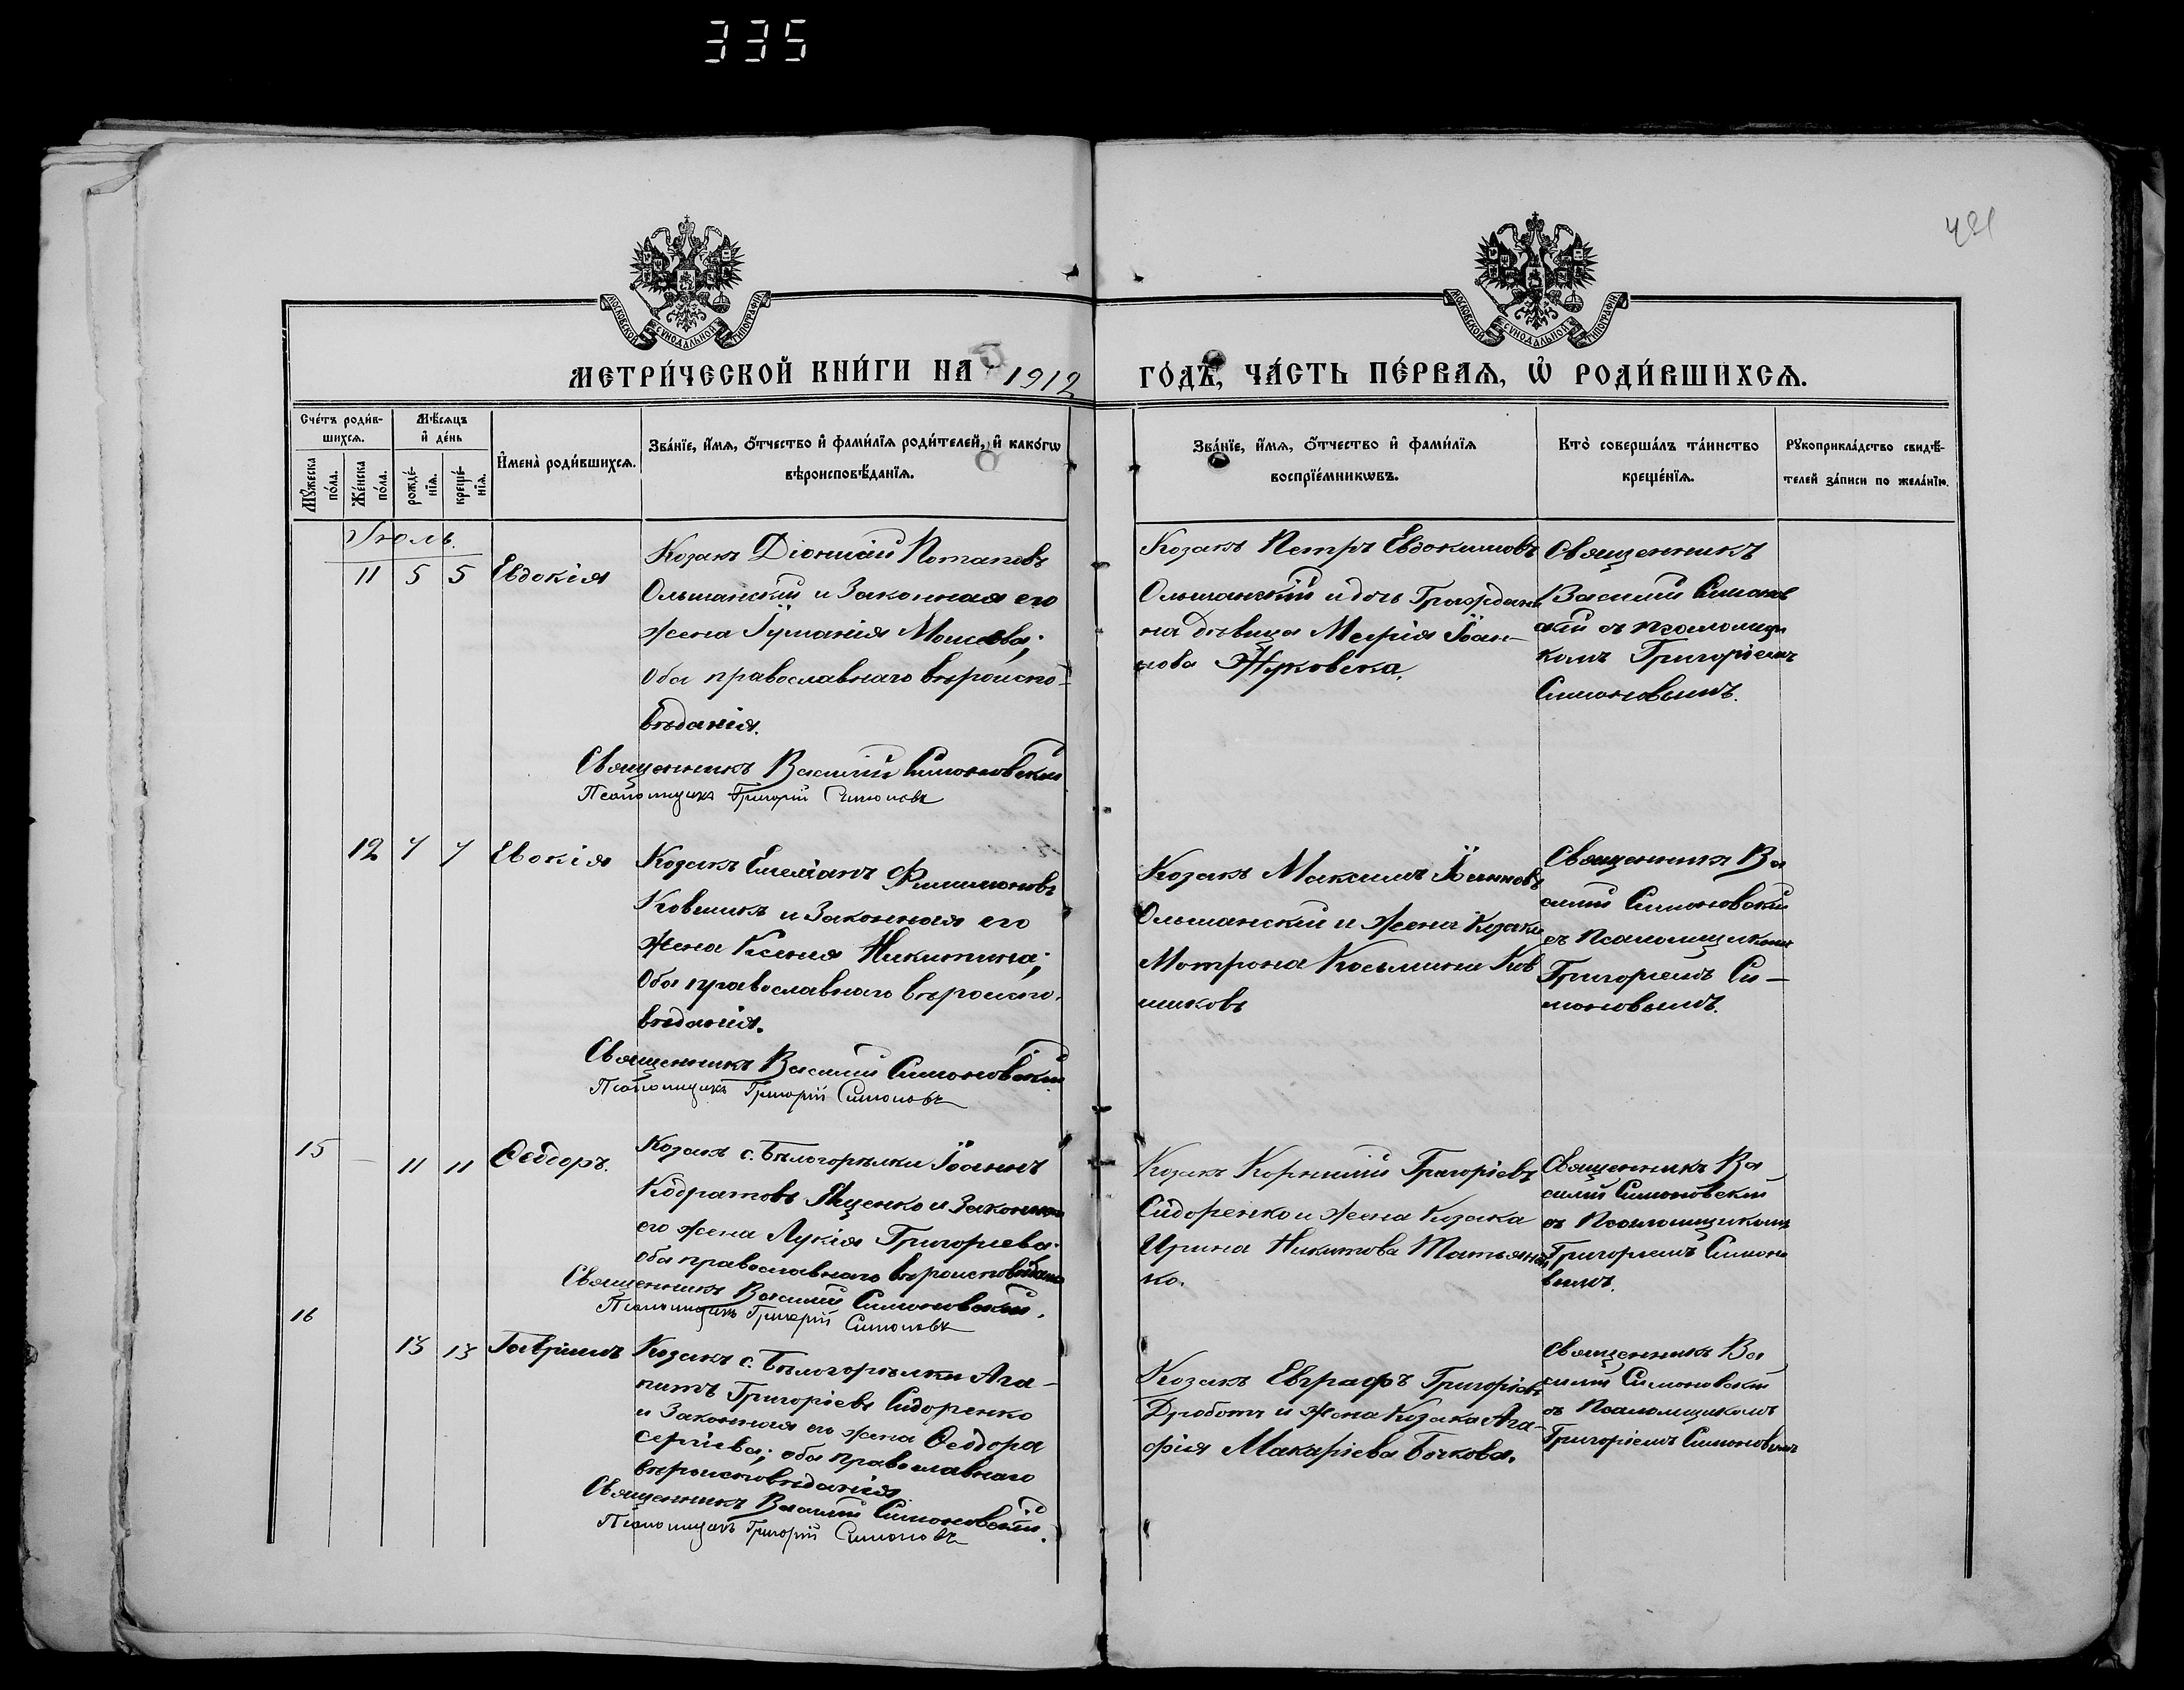 335
421
МОСКОВСКОЙ СУНОДАЛЬНОЙ ТИПОГРАФІИ
МОСКОВСКОЙ СУНОДАЛЬНОЙ ТИПОГРАФІИ
МЕТРИ́ЧЕСКОЙ КНИ́ГИ НА 1912 ГО́ДЪ, ЧА́СТЬ ПЕ́РВАѦ, Ѡ РОДИ́ВШИХСѦ.
Сче́тъ роди́в-
шихсѧ.
Мѣ́сѧцъ
и҆ де́нь
Мꙋ́жеска по́ла.
Же́нска по́ла.
рожде́-
нїѧ.
креще́-
нїѧ.
И҆мена̀ роди́вшихсѧ.
Зва́нїе, и҆́мѧ, ѻ҆́тчество и҆ фами́лїѧ роди́телей, и҆ како́гѡ
вѣроисповѣ́данїѧ.
Зва́нїе, и҆́мѧ, ѻ҆́тчество и҆ фами́лїѧ
воспрїе́мникѡвъ.
Кто̀ соверша́лъ та́инство
креще́нїѧ.
Рꙋкоприкла́дство свидѣ́-
телей за́писи по жела́нїю.
Іюль.
11 5 5 Евдокія
Козакъ Діонисій Потаповъ
Ольшанскій и Законная его
жена Моисеева;
Оба православнаго вѣроиспо-
вѣданія.
Священникъ Василій Симоновскій
Псаломщикъ Григорій Симоновъ
Козакъ Петръ Евдокимовъ
Ольшанскій и дочь Граждани
на дѣвица Марія Іоан-
нова Жуковска,
Священникъ
Василій Симонов
скій съ псаломщи
комъ Григоріемъ
Симоновымъ.
12 7 7 Евокія
Козакъ Емеліанъ Филимоновъ
Ковшикъ и Законная его
жена Ксенія Никитина;
Оба православнаго вѣроиспо-
вѣданія.
Священникъ Василій Симоновскій
Псаломщикъ Григорій Симоновъ
Козакъ Максимъ Іоанновъ
Ольшанскій и жена Козака
Мотрона Косьмина Ков
шиковъ
Священникъ Ва
силій Симоновскій
съ Псаломщикомъ
Григоріемъ Си-
моновымъ.
15 — 11 11 Ѳеодоръ.
Козакъ с. Бѣлогорѣлки Іоаннъ
Кодратовъ Яценко и Законная
его жена Лукія Григорьева;
оба православнаго вѣроисповѣданія
Священникъ Василій Симоновскій.
Псаломщикъ Григорій Симоновъ
Козакъ Корнилій Григоріевъ
Сидоренко и жена Козака
Ирина Никитова Татьянен
ко.
Священникъ Ва
силій Симоновскій
съ Псаломщикомъ
Григоріемъ Симоно
вымъ.
16
13 13 Гавріилъ
Козакъ с. Бѣлогорѣлки Ага-
питъ Григоріевъ Сидоренко
и Законная его жена Ѳеодора
Сергіева; оба православнаго
вѣроисповѣданія
Священникъ Василій Симоновскій.
Псаломщикъ Григорій Симоновъ
Козакъ Евграфъ Григоріевъ
Дроботъ и жена Козака Ага-
фія Макаріева Бочкова.
Священникъ Ва
силій Симоновскій
съ Псаломщикомъ
Григоріемъ Симоновымъ